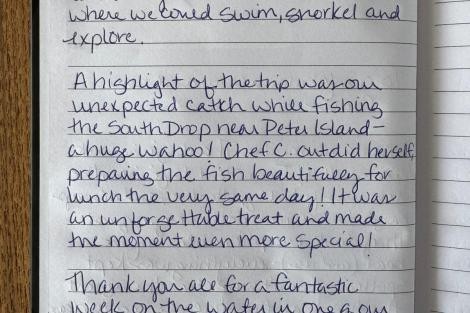 where we could swim, snorkel and
explore.
A highlight of the trip was our
unexpected catch while fishing
the South Drop near Peter Island-
a huge wahoo! Chef C. outdid herself,
preparing the fish beautifully for
lunch the very same day! It was
an unforgettable treat and made
the moment even more special!
Thank you all for a fantastic
week on the water in one of our